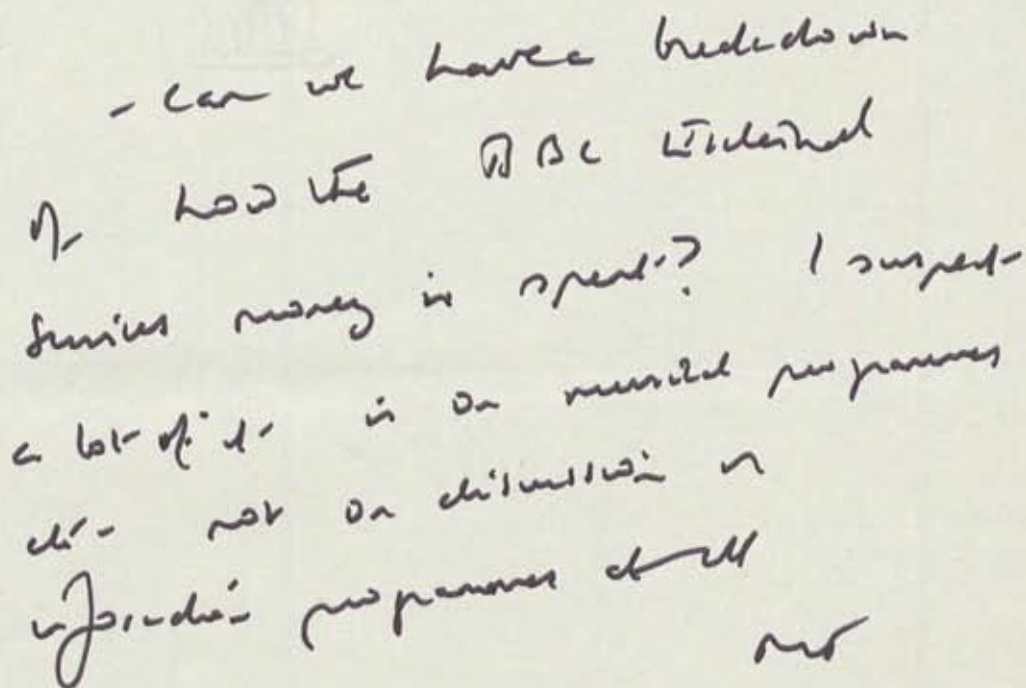 - Can we have a breakdown
of how the BBC External
Services money is spent? I suspect
a lot of it is on musical programmes
etc - not on discussion or
information programmes at all
MT